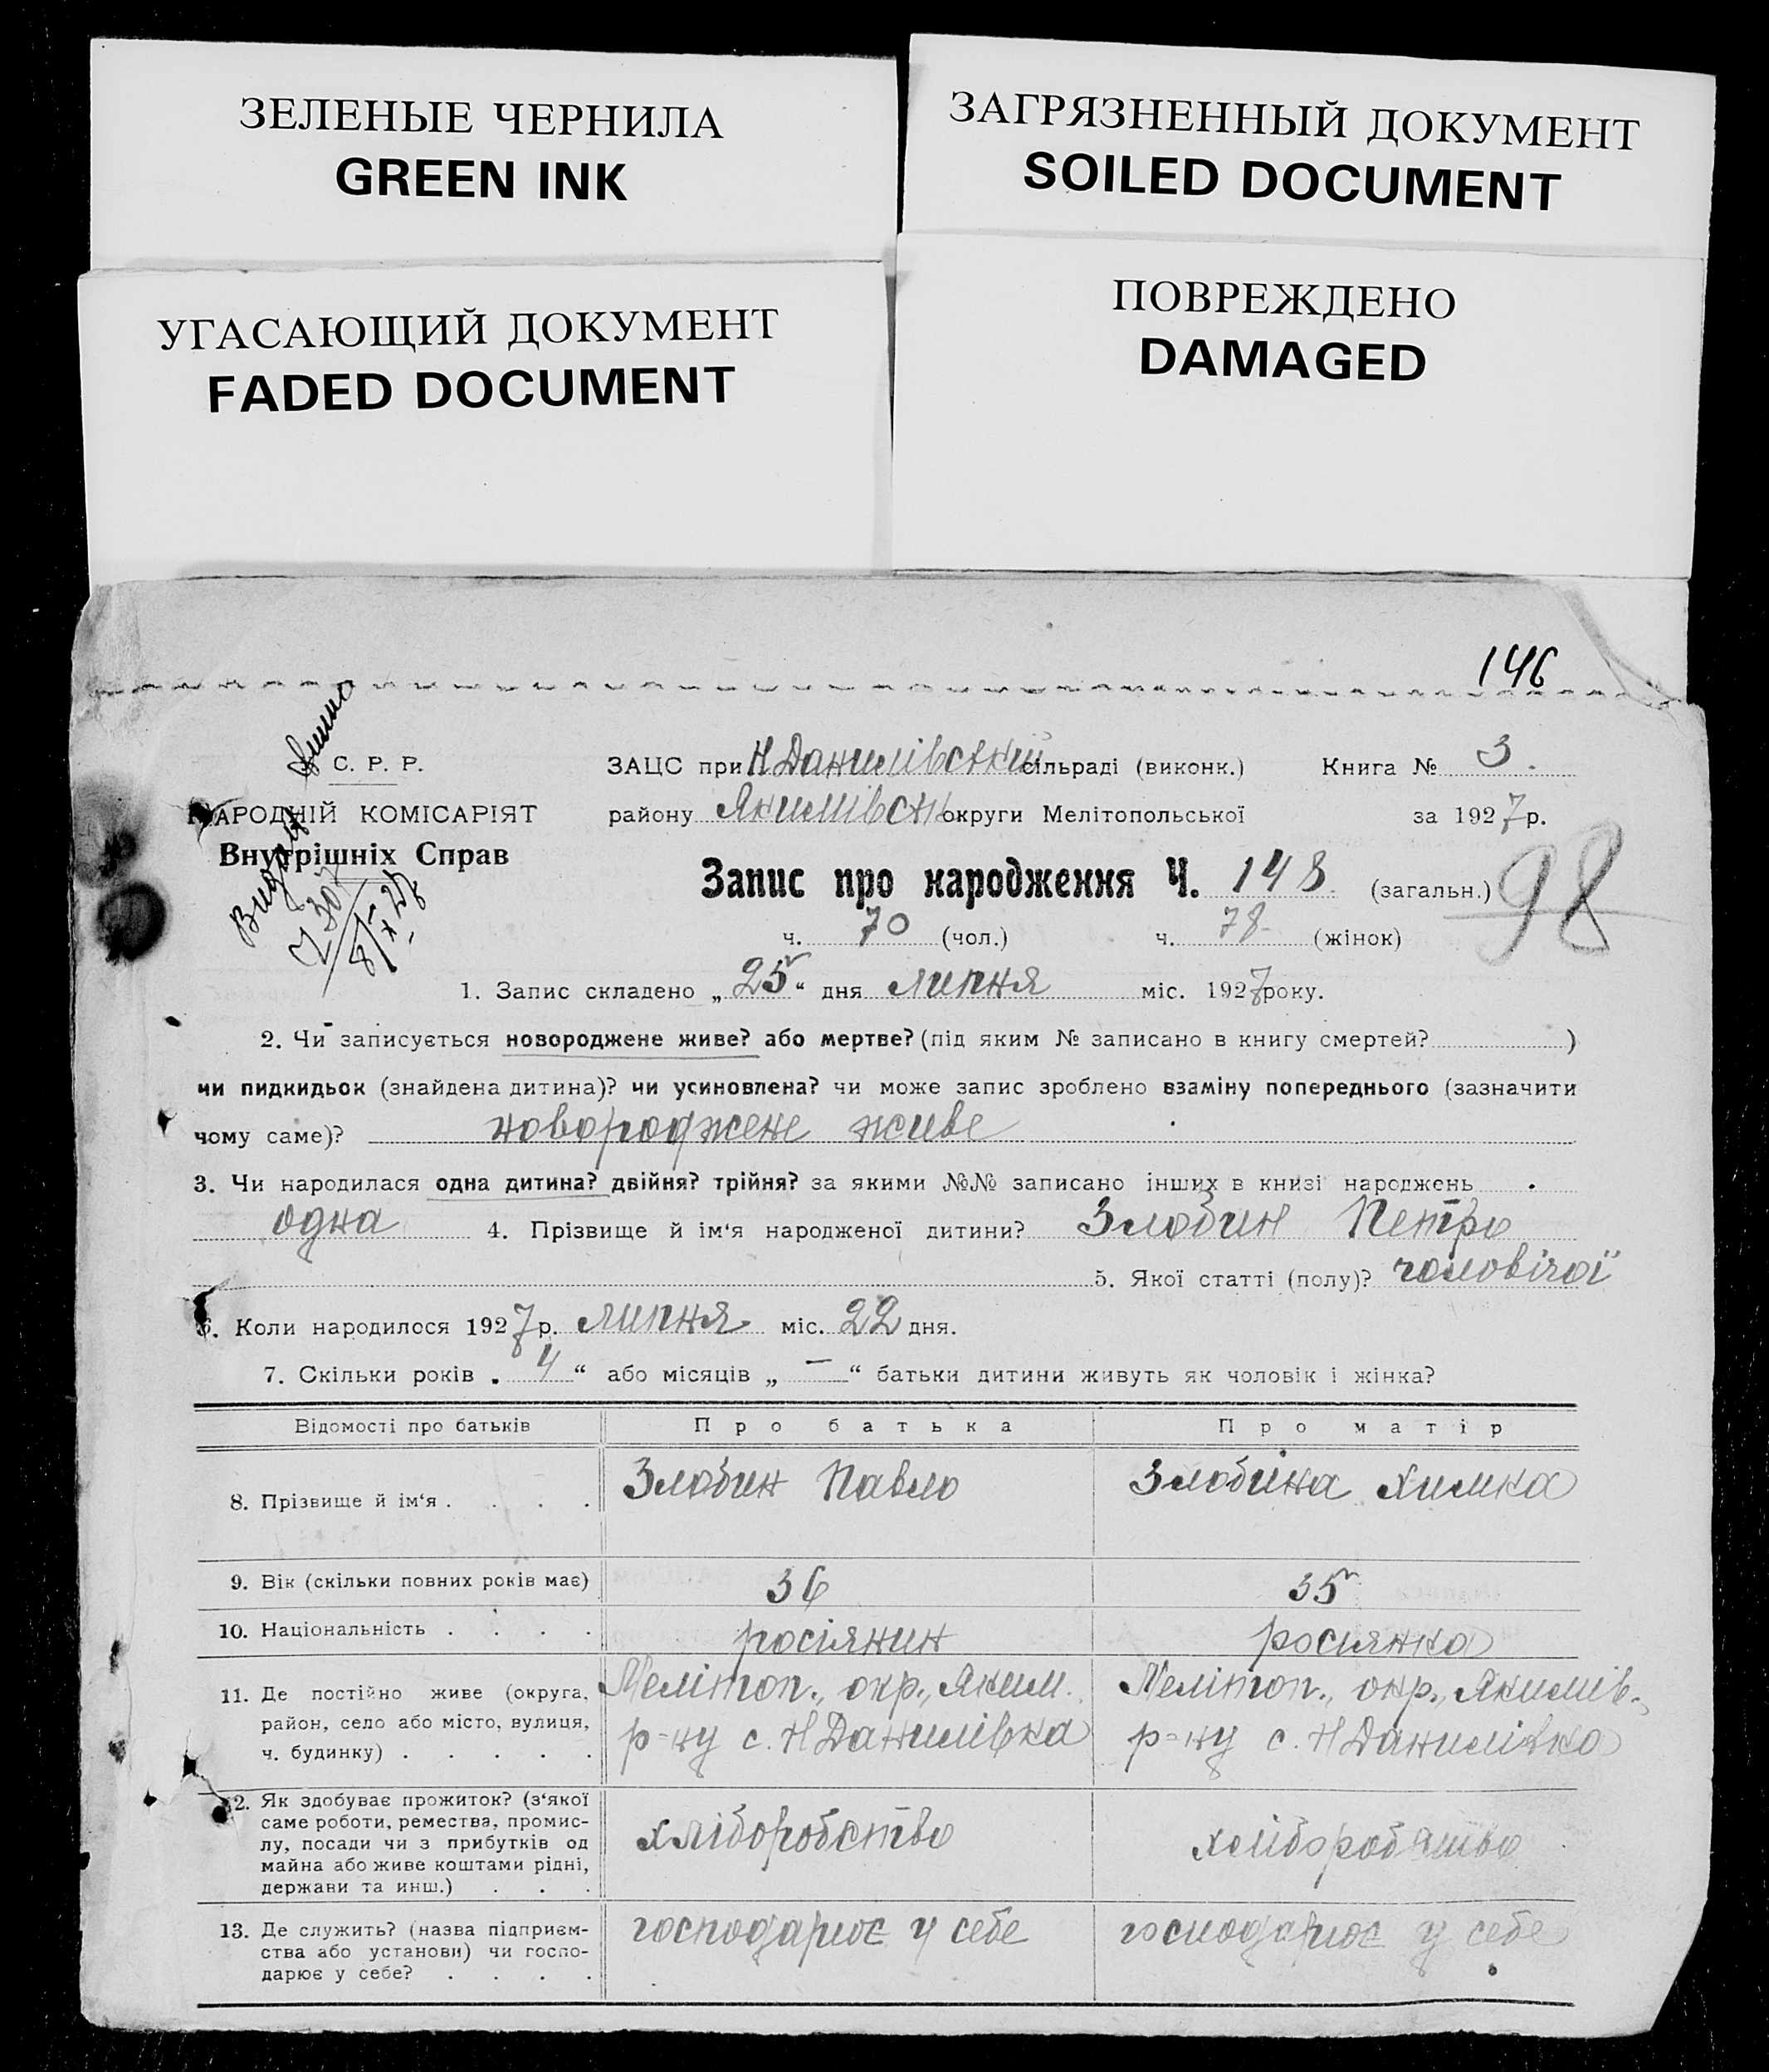 ЗЕЛЕНЫЕ ЧЕРНИЛА
GREEN INK
ЗАГРЯЗНЕННЫЙ ДОКУМЕНТ
SOILED DOCUMENT
УГАСАЮЩИЙ ДОКУМЕНТ
FADED DOCUMENT
ПОВРЕЖДЕНО
DAMAGED
146
С. Р. Р.
НАРОДНІЙ КОМІСАРІЯТ
Внутрішніх Справ
ЗАЦС при Н Данилівській сільраді (виконк.) Книга № 3.
району Якимівськ. округи Мелітопольської за 1927 р.
Запис про народження Ч. 148 (загальн.) 98
ч. 70 (чол.) ч. 78 (жінок)
1. Запис складено „25“ дня липня міс. 1927 року.
2. Чи записується новороджене живе? або мертве? (під яким № записано в книгу смертей? )
чи пидкидьок (знайдена дитина)? чи усиновлена? чи може запис зроблено взаміну попереднього (зазначити
чому саме)? новороджене живе
3. Чи народилася одна дитина? двійня? трійня? за якими №№ записано інших в книзі народжень
одна 4. Прізвище й ім'я народженої дитини? Злобин Петро
5. Якої статті (полу)? чоловічої
6. Коли народилося 1927 р. липня міс. 22 дня.
7. Скільки років „4“ або місяців „—“ батьки дитини живуть як чоловік і жінка?
Відомості про батьків Про батька Про матір
8. Прізвище й ім'я . . . . Злобин Павло Злобина Химка
9. Вік (скільки повних років має) 36 35
10. Національність . . . . росіянин росиянка
11. Де постійно живе (округа, Меліпоп., окр., Яким. Меліпоп., окр., Якимів.,
район, село або місто, вулиця, р=ну с. Н Данилівка р=ну с. Н Данилівка
ч. будинку) . . . . .
12. Як здобуває прожиток? (з'якої
саме роботи, ремества, промис-
лу, посади чи з прибутків од хліборобство хліборобство
майна або живе коштами рідні,
держави та инш.) . . .
13. Де служить? (назва підприєм- господарює у себе господарює у себе
ства або установи) чи госпо-
дарює у себе? . . . .